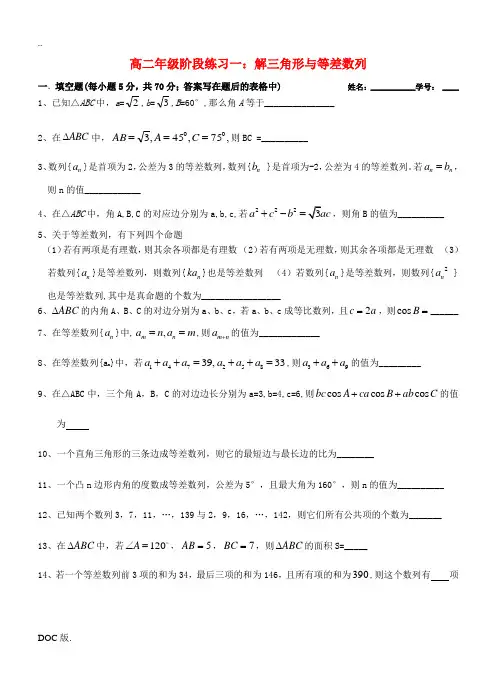 ..
高二年级阶段练习一：解三角形与等差数列
一．填空题(每小题5分，共70分；答案写在题后的表格中)　　姓名：__________学号：____
1、已知△ABC中，a=√2,b=√3,B=60°,那么角A等于_______________
2、在∆ABC中，AB=√3,A=45⁰,C=75⁰,则BC =__________
3、数列{aₙ}是首项为2,公差为3的等差数列,数列{bₙ }是首项为-2,公差为4的等差数列。若aₙ=bₙ，
则n的值____________
4、在△ABC中，角A,B,C的对应边分别为a,b,c,若a²+c²-b²=√3ac，则角B的值为__________
5、关于等差数列，有下列四个命题
(1)若有两项是有理数,则其余各项都是有理数 (2)若有两项是无理数,则其余各项都是无理数 (3)
若数列{aₙ}是等差数列，则数列{kaₙ}也是等差数列 (4)若数列{aₙ}是等差数列，则数列{aₙ² }
也是等差数列,其中是真命题的个数为_________________
6、∆ABC的内角A、B、C的对边分别为a、b、c，若a、b、c成等比数列，且c=2a，则cosB=______
7、在等差数列{aₙ}中, aₘ=n,aₙ=m,则aₘ₊ₙ的值为_____________
8、在等差数列{aₙ}中，若a₁+a₄+a₇=39,a₂+a₅+a₈=33,则a₃+a₆+a₉的值为_________
9、在△ABC中，三个角A，B，C的对边边长分别为a=3,b=4,c=6,则bccosA+cacosB+abcosC的值
为_____
10、一个直角三角形的三条边成等差数列，则它的最短边与最长边的比为________
11、一个凸n边形内角的度数成等差数列，公差为5°，且最大角为160°，则n的值为__________
12、已知两个数列3，7，11，…，139与2，9，16，…，142，则它们所有公共项的个数为_______
13、在∆ABC中，若∠A=120°，AB=5，BC=7，则∆ABC的面积S=_____
14、若一个等差数列前3项的和为34，最后三项的和为146，且所有项的和为390,则这个数列有__项
DOC版.